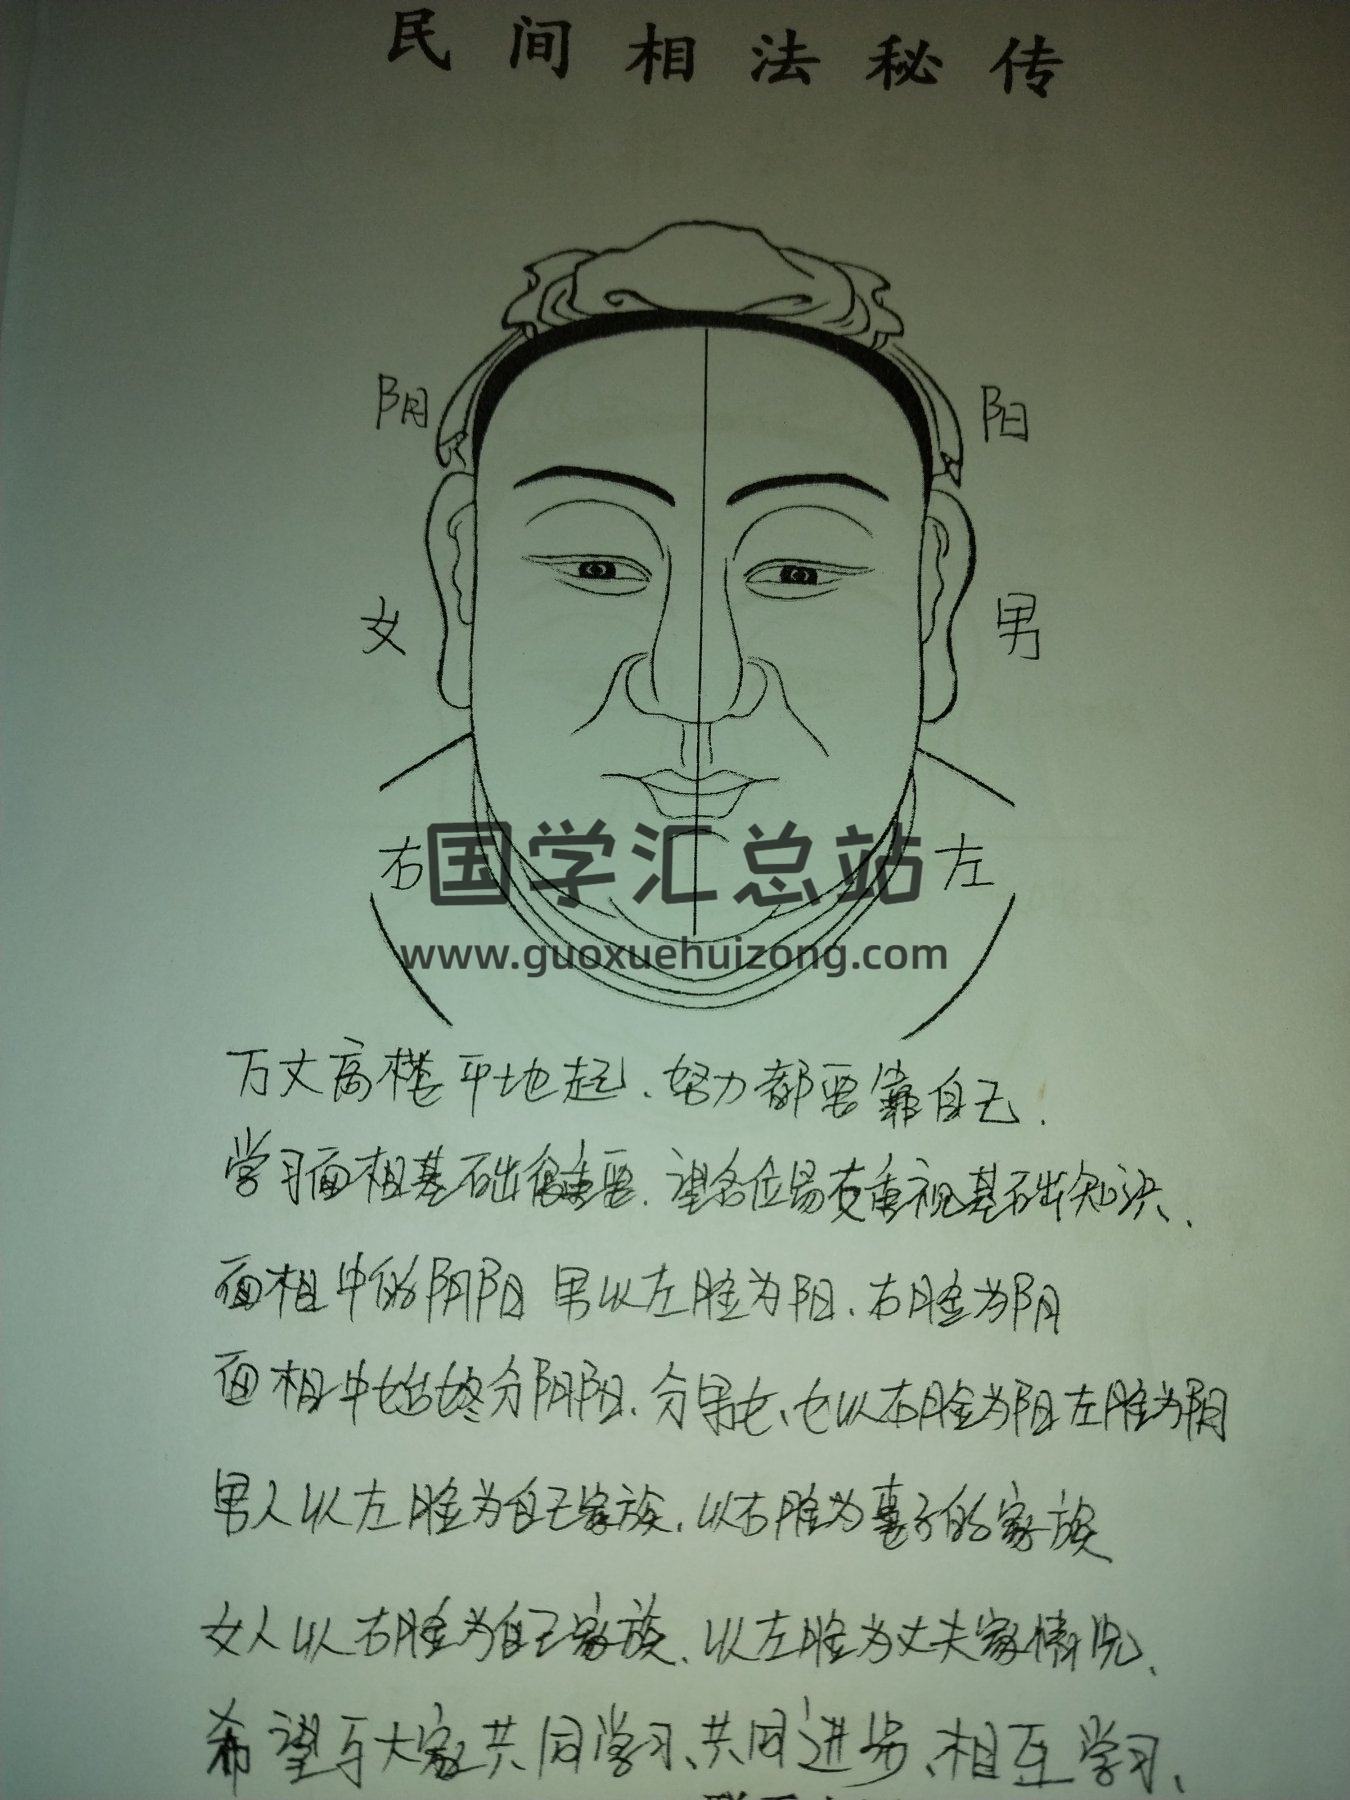 民间相法秘传
阴
阳
女
男
右
左
国学汇总站
www.guoxuehuizong.com
万丈高楼平地起、努力都要靠自己.
学习面相基础很重要、望各位易友重视基础知识、
面相中的阴阳 男以左脸为阳、右脸为阴
面相中始终分阴阳、分男女、女以右脸为阳左脸为阴
男人以左脸为自己家族、以右脸为妻子的家族
女人以右脸为自己家族、以左脸为丈夫家情况、
希望与大家共同学习、共同进步、相互学习、